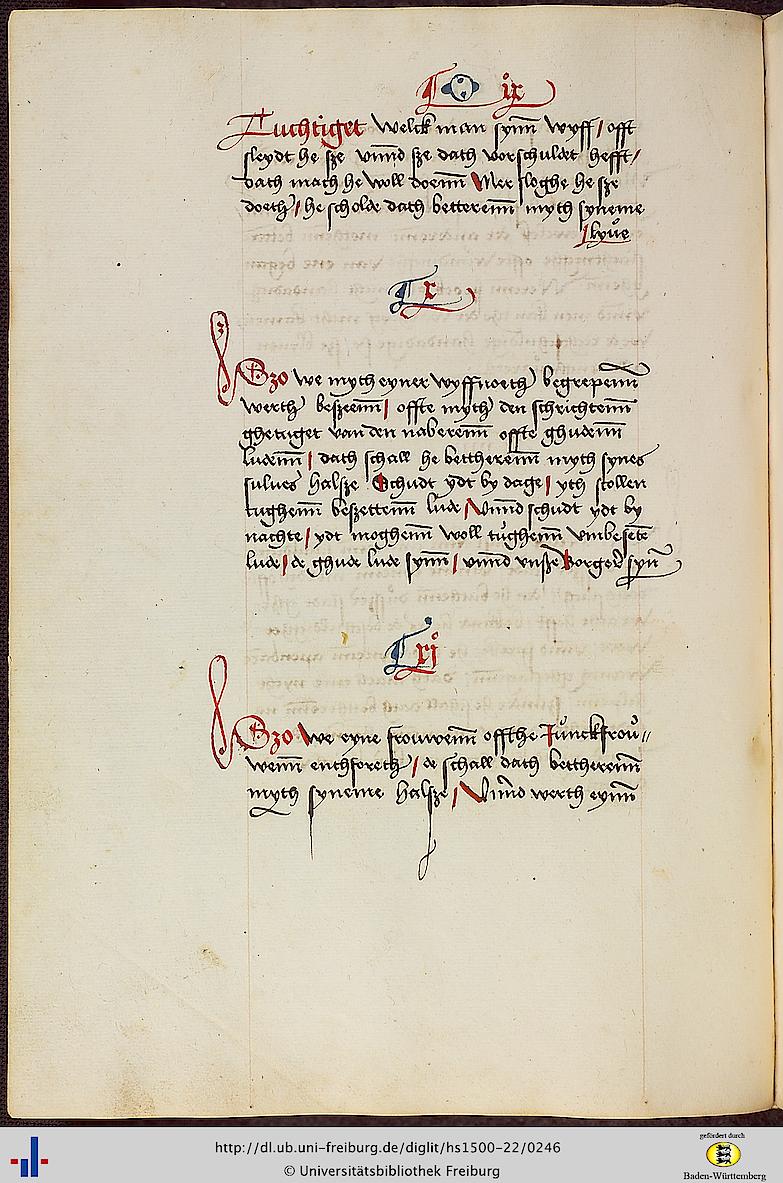 C ix
Tuchtiget welck man synn wyff / offt
sleydt he sze vnnd sze dath vorschuldet hefft /
dath mach he woll doenn Mer sloghe he sze
doeth / he scholde dath betterenn myth syneme
/ lyue
C x
Szo we myth eyner wyffnoeth begrepenn
werth beszeenn / offte myth den schrichtenn
ghetuget van den naberenn offte ghudenn
ludenn / dath schall he bettherenn myth synes
sulues halsze Schudt ydt by dage / yth scollen
tughenn beszettenn lude / Vnnd schudt ydt by
nachte / ydt moghenn woll tughenn vmbesete
lude / de ghude lude synn / vnnd vnsze Borger synn
C xi
Szo we eyne frouwenn offthe Junckfrou〃
wenn enthforeth / de schall dath bettherenn
myth syneme halsze / Vnnd werth eynn
http://dl.ub.uni-freiburg.de/diglit/hs1500-22/0246
© Universitätsbibliothek Freiburg
gefördert durch
Baden-Württemberg